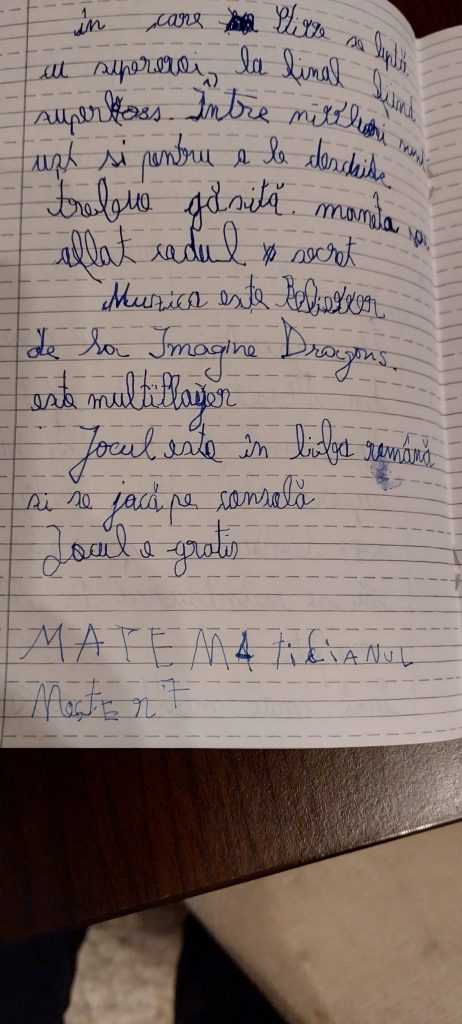 în care Steve se luptă
cu supereroi, la final fiind
superboss. Între niveluri sunt
uși și pentru a le deschide
trebuie găsită maneta sau
aflat codul secret
Muzica este Believer
de la Imagine Dragons.
este multiplayer
Jocul este în limba română
și se joacă pe consolă
Jocul e gratis
MATEMATICIANUL